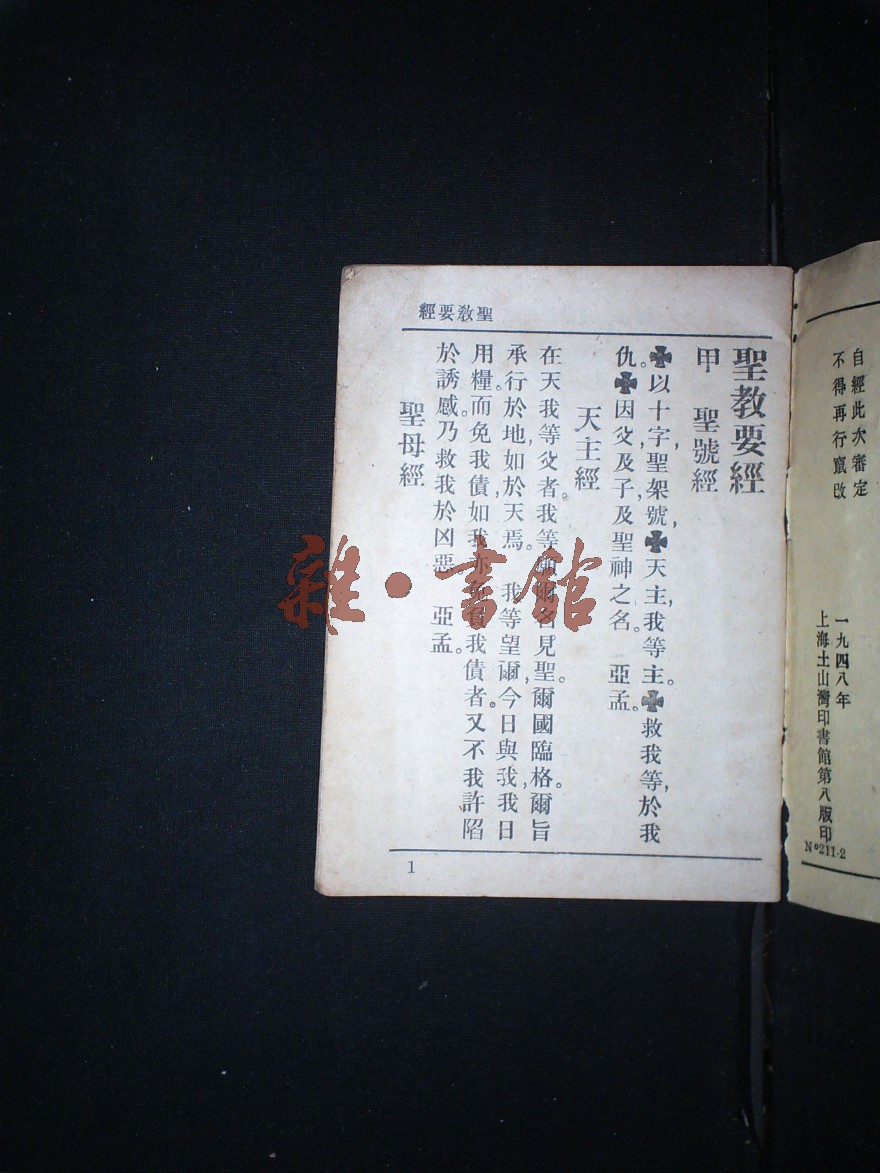 自經此次審定
不得再行竄改
一九四八年
上海土山灣印書館第八版印
Nº211-2
聖教要經
聖教要經
甲　聖號經
✠以十字聖架號，✠天主，我等主。✠救我等，於我
仇。✠因父，及子，及聖神之名。　亞孟。
天主經
在天我等父者。我等願爾名見聖。爾國臨格。爾旨
承行於地，如於天焉。　我等望爾，今日與我，我日
用糧。而免我債，如我亦免負我債者。又不我許陷
於誘感。乃救我於凶惡。　亞孟。
聖母經
1
雜·書館